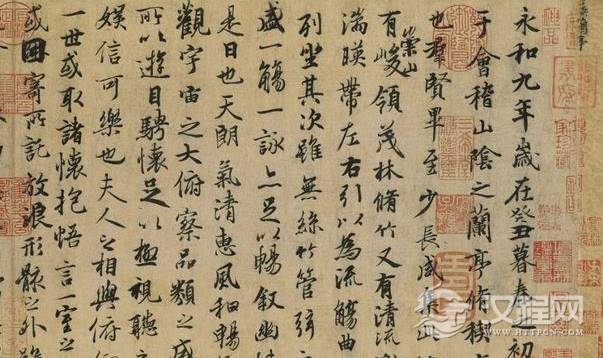 永和九年歲在癸丑暮春之初
于會稽山陰之蘭亭脩稧
也羣賢畢至少長咸集此
崇山
有峻領茂林脩竹又有清流激
湍暎帶左右引以為流觴曲
列坐其次雖無絲竹管弦之
盛一觴一詠亦足以暢叙幽情
是日也天朗氣清惠風和暢
觀宇宙之大俯察品類之盛
所以遊目騁懷足以極視聽之
娛信可樂也夫人之相與俯仰
一世或取諸懷抱悟言一室之
或因寄所託放浪形骸之外雖
汉程网
HTTPCN.COM